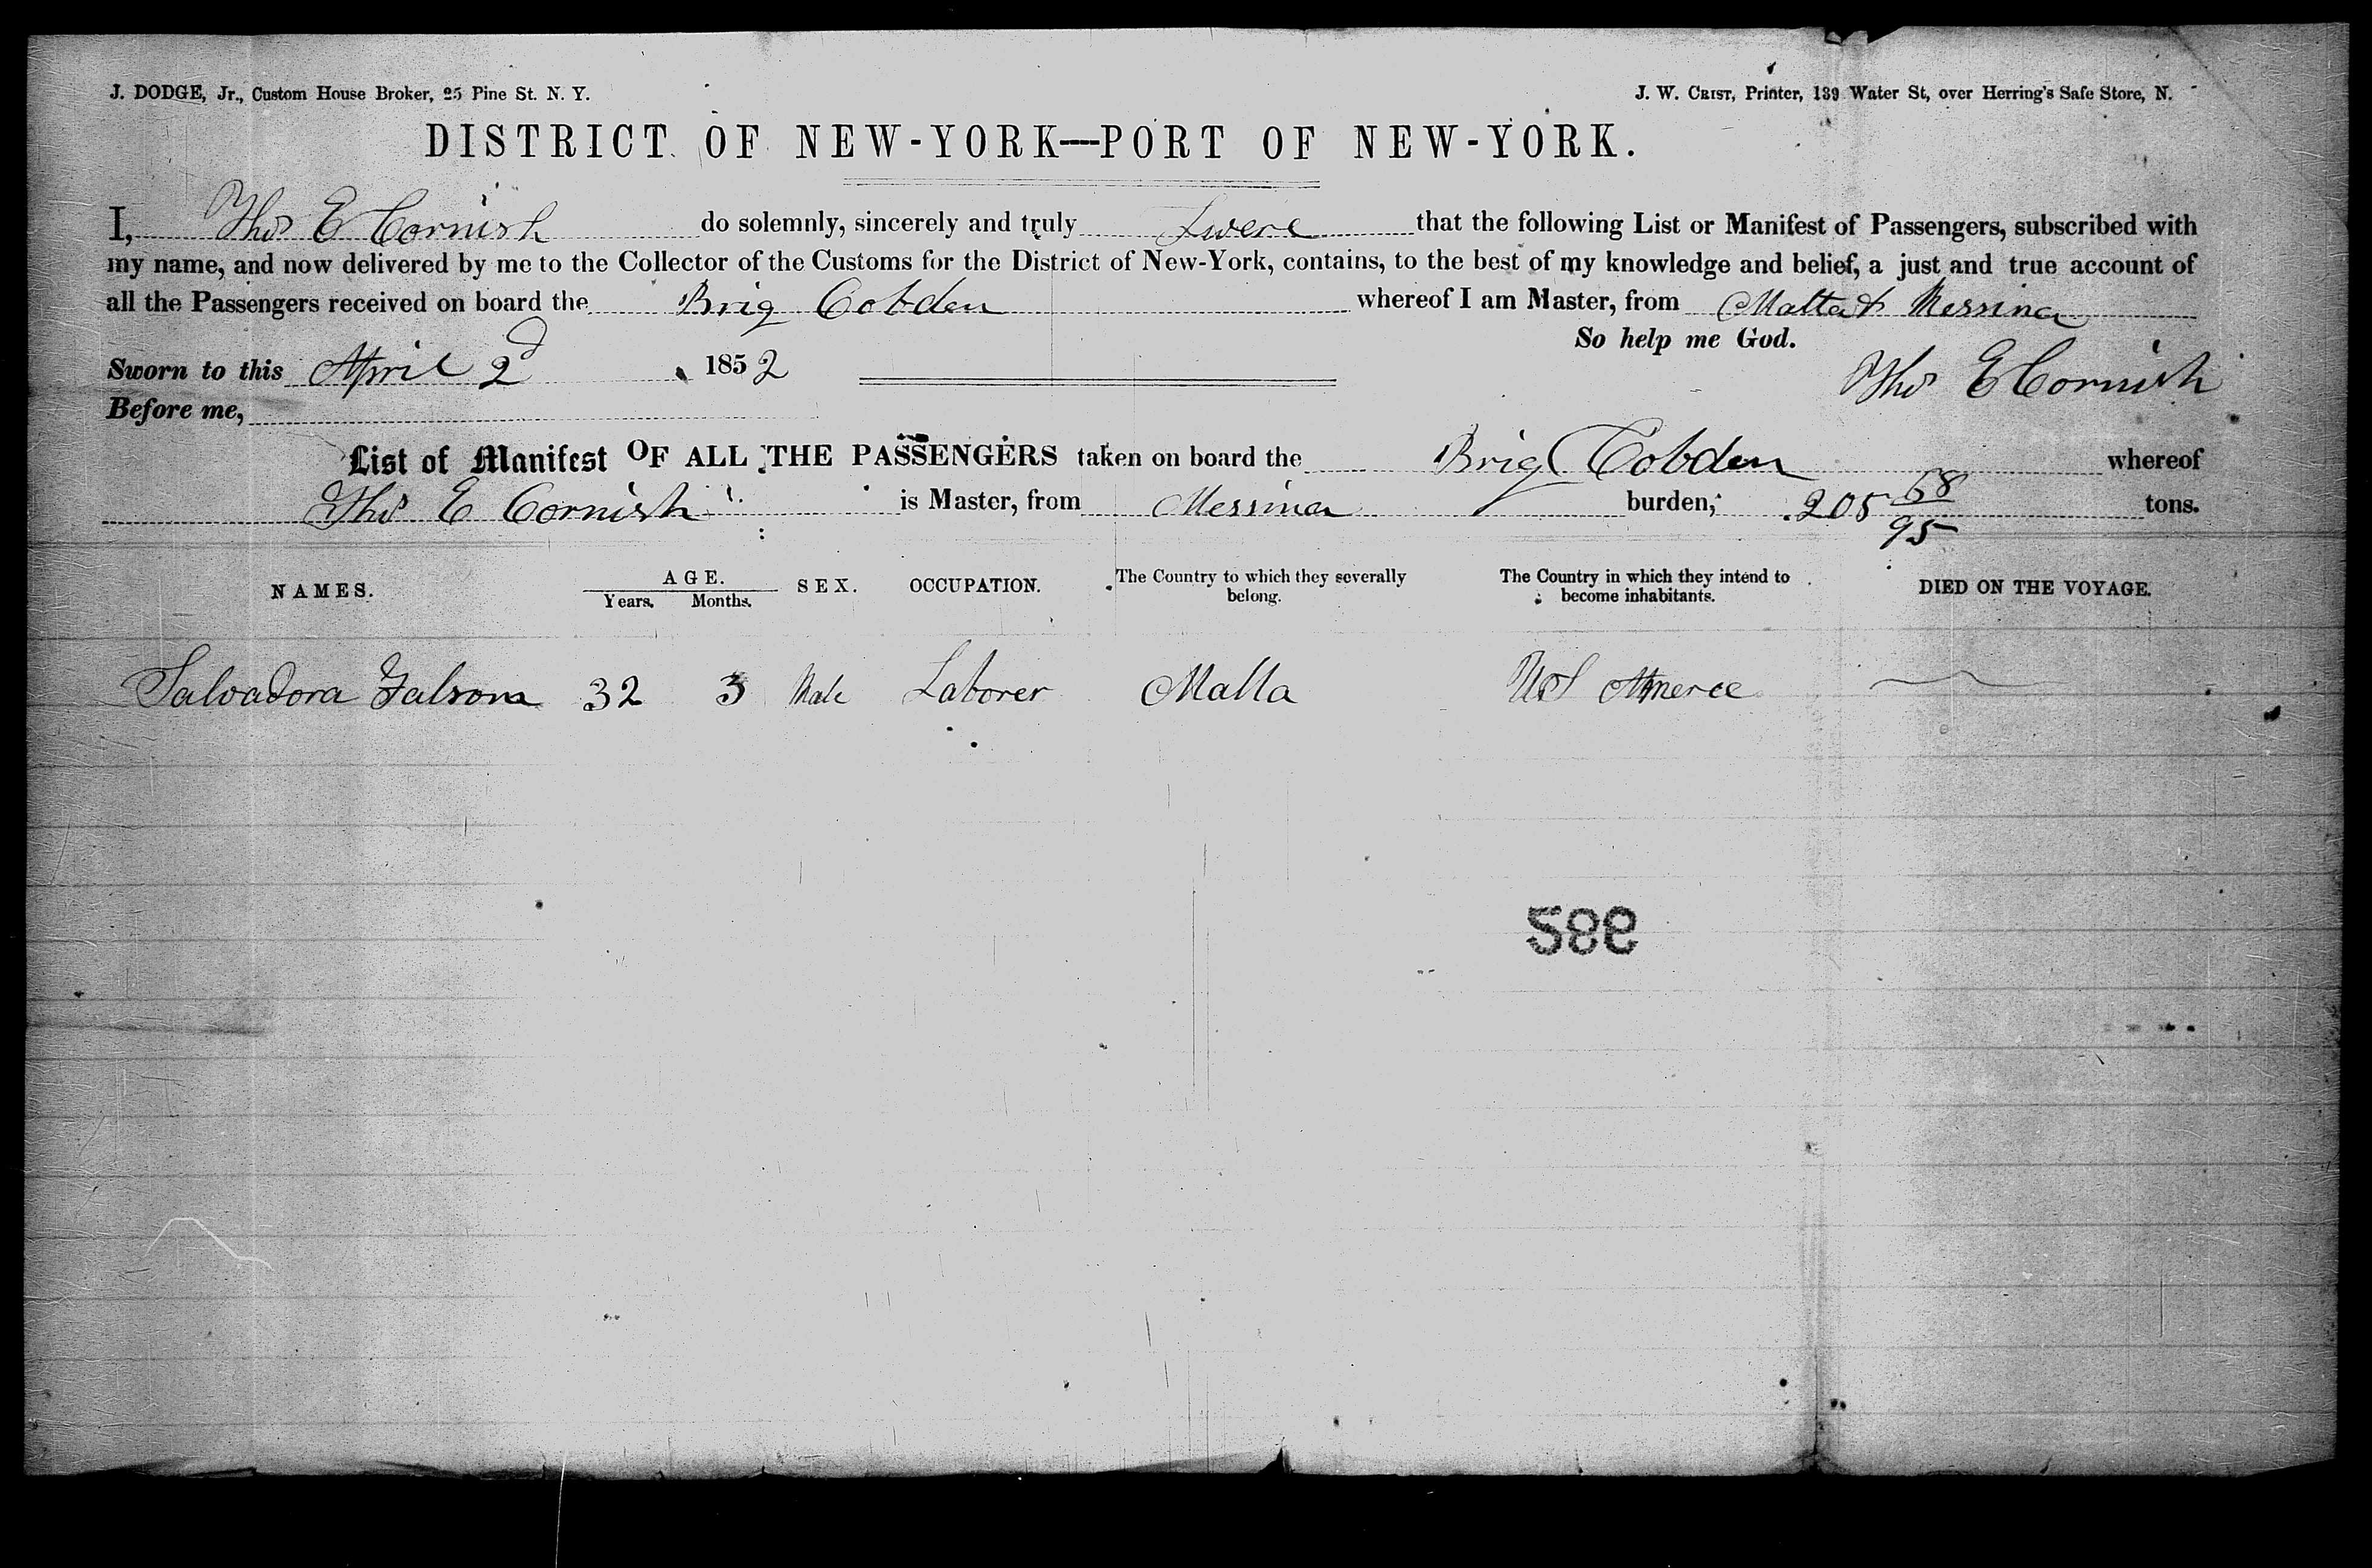 J. DODGE, Jr., Custom House Broker, 25 Pine St. N. Y.
J. W. CRIST, Printer, 139 Water St, over Herring's Safe Store, N.
DISTRICT OF NEW-YORK—PORT OF NEW-YORK.
I, Thos E Cornish do solemnly, sincerely and truly Swere that the following List or Manifest of Passengers, subscribed with
my name, and now delivered by me to the Collector of the Customs for the District of New-York, contains, to the best of my knowledge and belief, a just and true account of
all the Passengers received on board the Brig Cobden whereof I am Master, from Malta & Messina
So help me God.
Sworn to this April 2d 1852
Thos E Cornish
Before me,
List of Manifest OF ALL THE PASSENGERS taken on board the Brig Cobden whereof
Thos E Cornish is Master, from Messina burden, 205 68/95 tons.
NAMES. AGE. SEX. OCCUPATION. The Country to which they severally belong. The Country in which they intend to become inhabitants. DIED ON THE VOYAGE.
Years. Months.
Salvadora Galsona 32 3 Male Laborer Malta US
982